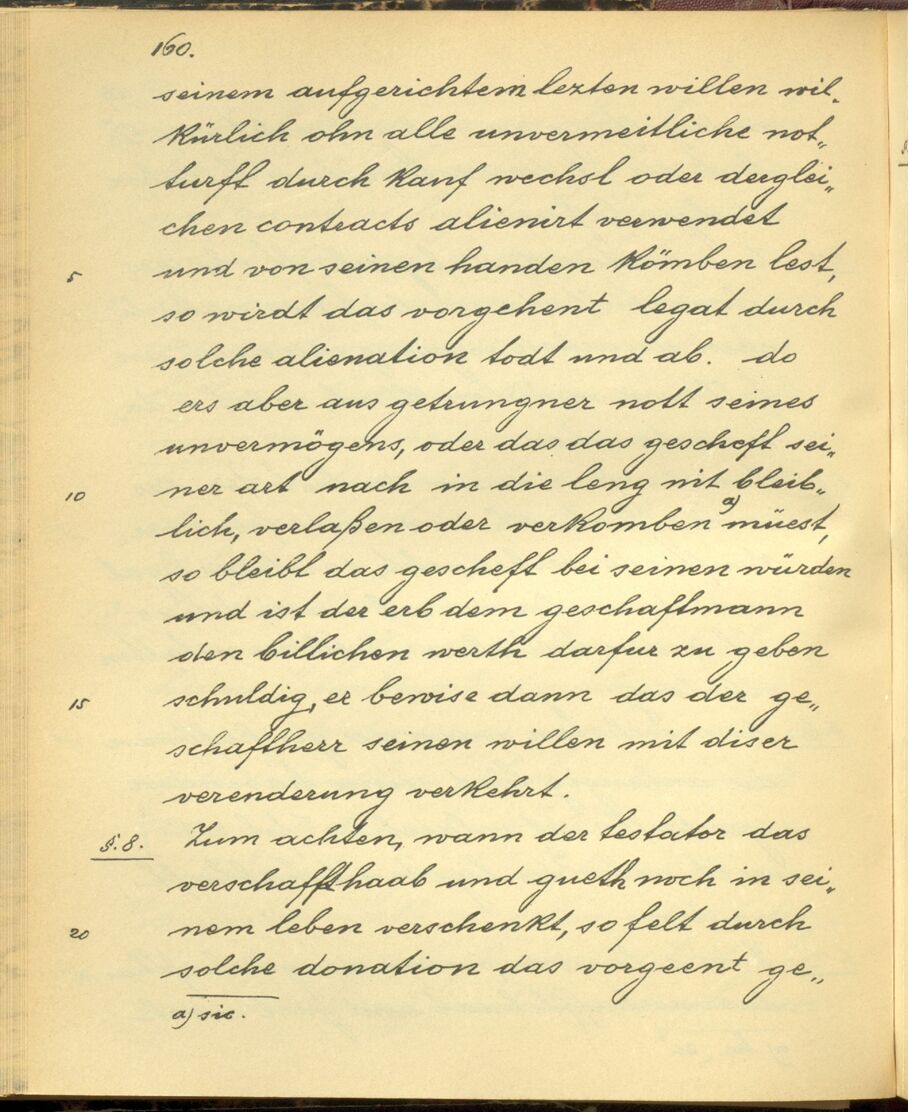 160.
seinem aufgerichtem lezten willen wil„
kürlich ohn alle unvermeitliche not„
turft durch kauf wechsl oder derglei„
chen contracts alienirt verwendet
5 und von seinen handen kömben lest,
so wirdt das vorgehent legat durch
solche alienation todt und ab. do
ers aber aus getrungner nott seines
unvermögens, oder das das gescheft sei„
10 ner art nach in die leng nit bleib„
lich, verlaßen oder verkomben a) müest,
so bleibt das gescheft bei seinen würden
und ist der erb dem geschaftmann
den billichen werth darfur zu geben
15 schuldig, er bewise dann das der ge„
schaftherr seinen willen mit diser
verenderung verkehrt.
§. 8. Zum achten, wann der testator das
verschafft haab und gueth noch in sei„
20 nem leben verschenkt, so felt durch
solche donation das vorgeent ge„
a) sic.